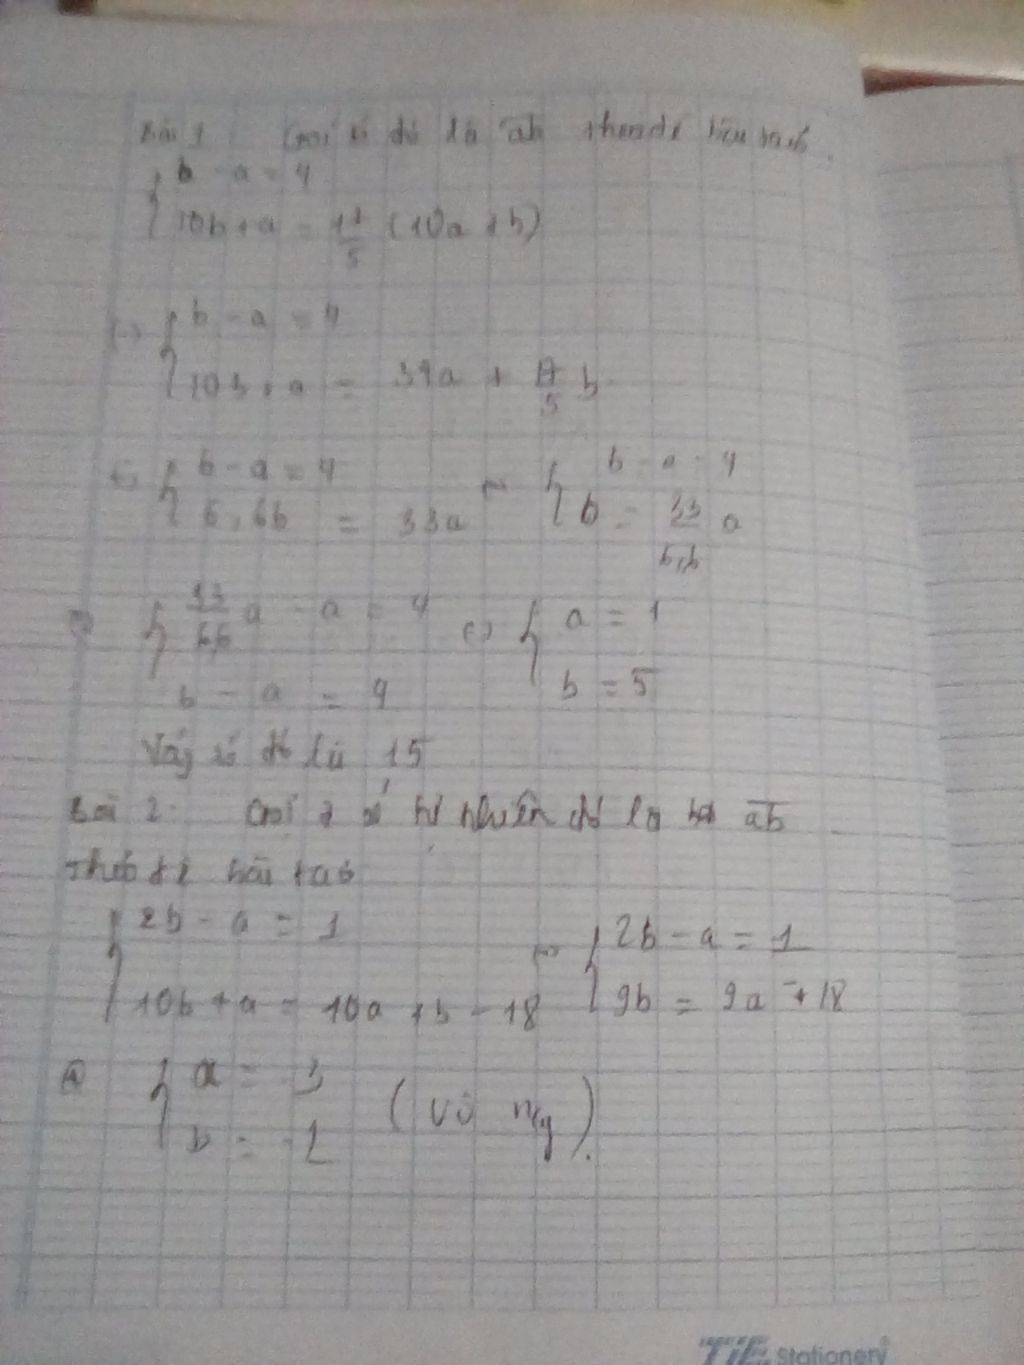 Bài 1 Gọi số đó là ab theo đề bài ta có
{ b - a = 4
{ 10b + a = 17/5 (10a + b)
(-) { b - a = 4
{ 10b + a = 34a + 17/5 b
{ b - a = 4 { b - a = 4
{ 6,6b = 33a { b = 33/6,6 a
{ 33/6,6 a - a = 4 (-) { a = 1
{ b - a = 4 { b = 5
Vậy số đó là 15
Bài 2: Gọi 2 số tự nhiên đó là ab
Theo đề bài ta có
{ 2b - a = 1 { 2b - a = 1
{ 10b + a = 10a + b - 18 { 9b = 9a + 18
{ a = 3
{ b =
TiE Stationery